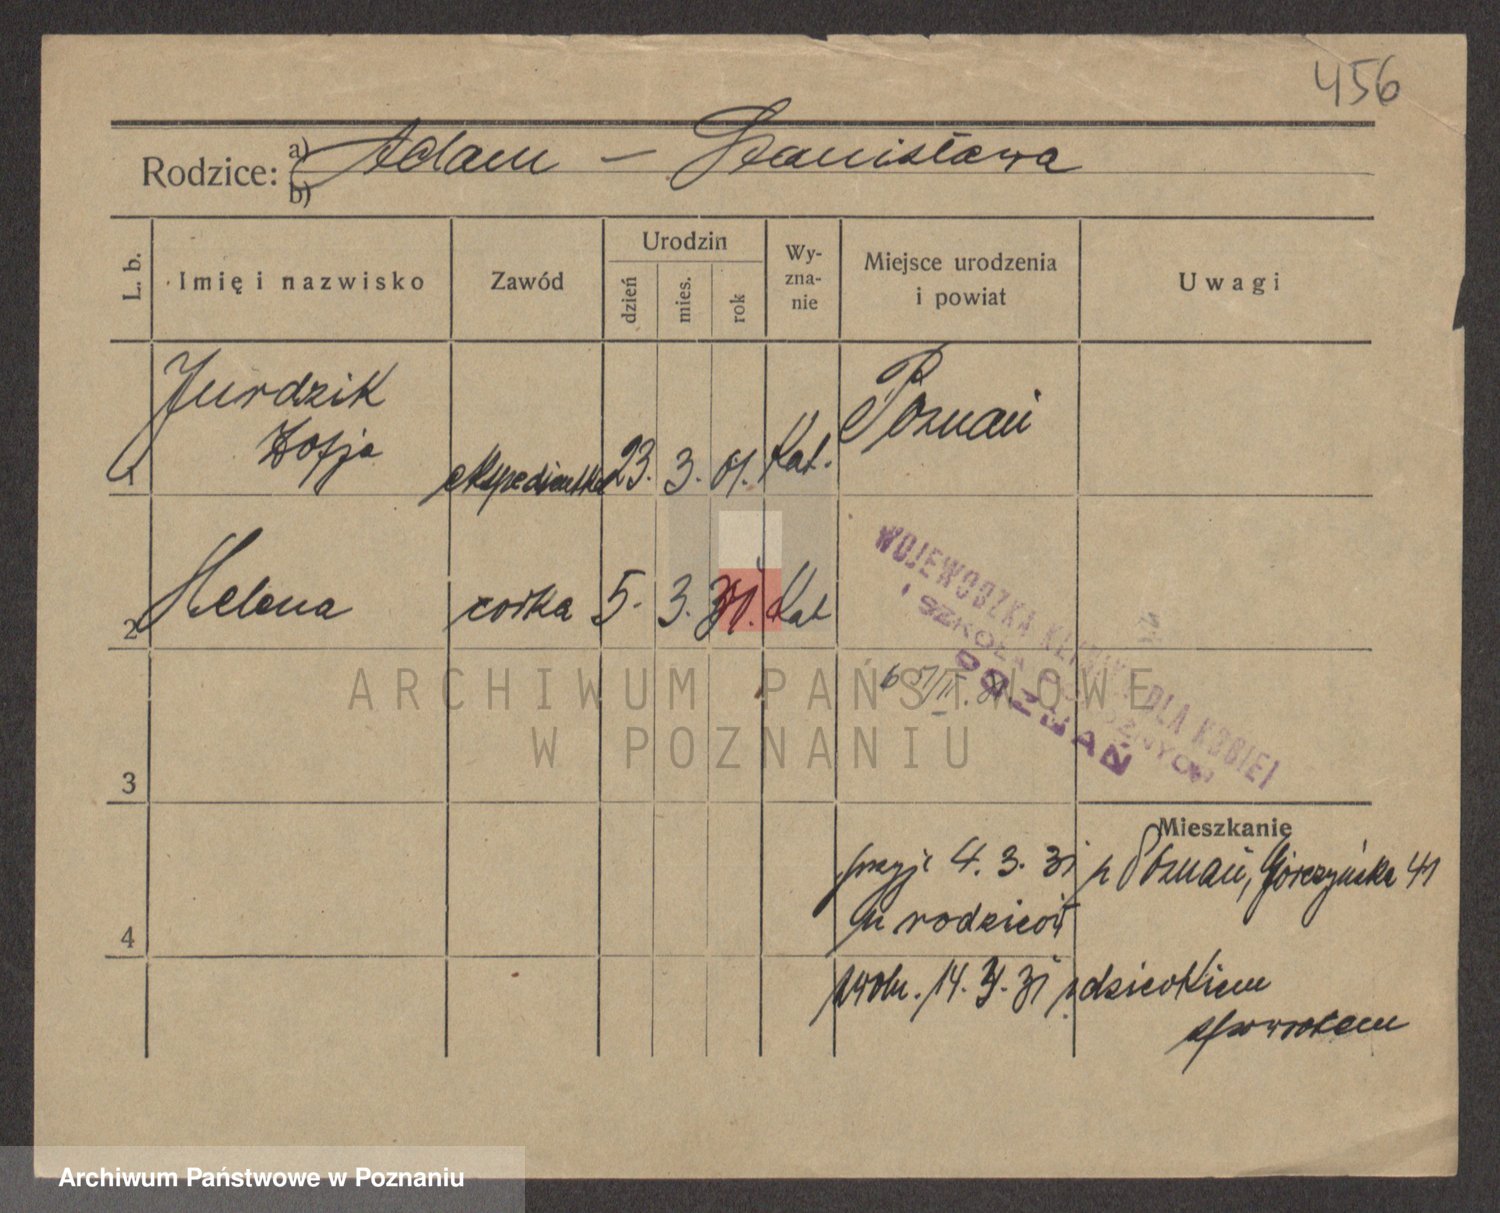 456
Rodzice: a) Adam – Stanisława
b)
L. b.
Imię i nazwisko
Zawód
Urodzin
dzień
mies.
rok
Wy-
zna-
nie
Miejsce urodzenia
i powiat
Uwagi
Jurdzik
Zofja
1 ekspedientka 23. 3. 01. Kat. Poznań
2 Helena córka 5. 3. 31. Kat
WOJEWÓDZKA KLINIKA DLA KOBIET
I SZKOŁA POŁOŻNYCH
POZNAŃ
ARCHIWUM PAŃSTWOWE
W POZNANIU
3
Mieszkanie
przyj: 4. 3. 31 Poznań, Górczyńska 41
u rodziców
4
14. 3. 31 z dzieckiem
z powrotem
Archiwum Państwowe w Poznaniu